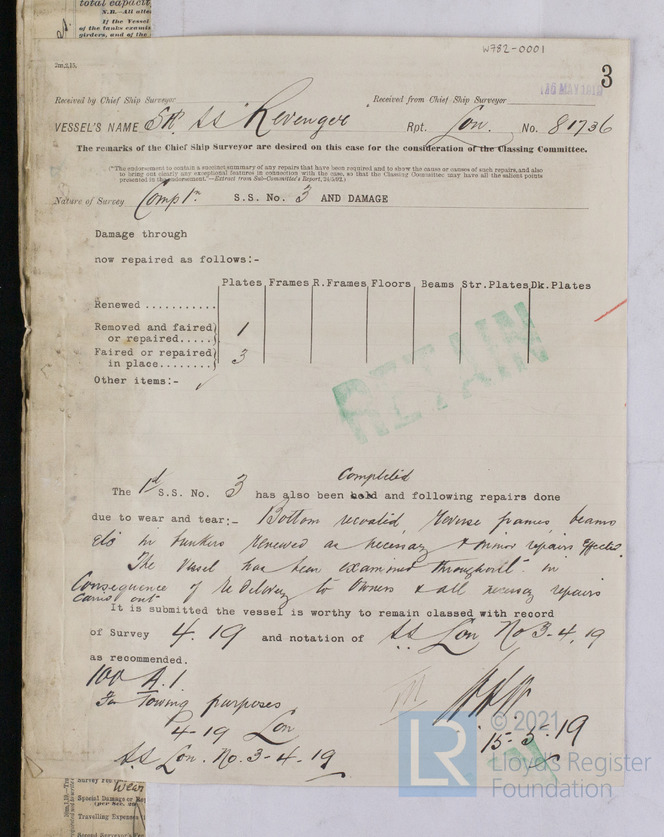 total capacit
N.B.—All alte
If the Vessel
of the tanks exami
girders, and of the
W782-0001
2m,2,15.
3
Received by Chief Ship Surveyor
Received from Chief Ship Surveyor
16 MAY 1919
VESSEL'S NAME SS "Revenger" Rpt. Lon. No. 81736
The remarks of the Chief Ship Surveyor are desired on this case for the consideration of the Classing Committee.
("The endorsement to contain a succinct summary of any repairs that have been required and to show the cause or causes of such repairs, and also
to bring out clearly any exceptional features in connection with the case, so that the Classing Committee may have all the salient points
presented in the endorsement."—Extract from Sub-Committee's Report, 24/5/02.)
Nature of Survey Compln S.S. No. 3 AND DAMAGE
Damage through
now repaired as follows:-
Plates Frames R.Frames Floors Beams Str.Plates Dk.Plates
Renewed ...........
Removed and faired
or repaired..... 1
Faired or repaired
in place........ 3
Other items:-
RETAIN
Completed
The 1st S.S. No. 3 has also been held and following repairs done
due to wear and tear:- Bottom revalid reverse frames, beams
etc in bunkers renewed as necessary & minor repairs effected.
The vessel has been examined throughout in
Consequence of Redelivery to Owners & all necessary repairs
carried out
It is submitted the vessel is worthy to remain classed with record
of Survey 4.19 and notation of SS Lon No 3-4.19
as recommended.
100 A.1.
For Towing purposes
4-19 Lon
SS Lon. No. 3-4.19
15-5-19
© 2021
LR
Lloyd's Register
Foundation
Survey Fee
Wear
Special Damage or Re
Travelling Expenses
Second Surveyor's Fee